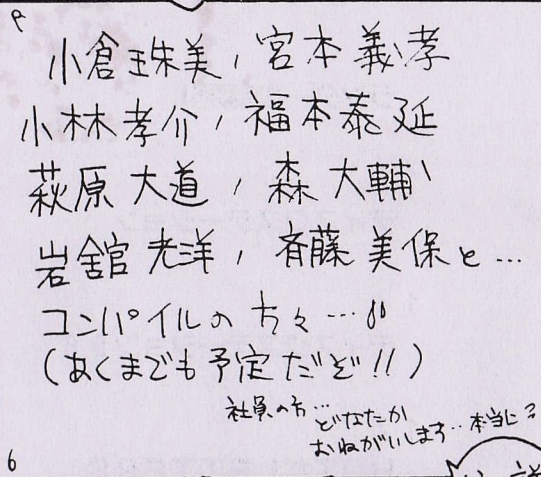 小倉珠美, 宮本義孝
小林孝介, 福本泰延
萩原大道, 森大輔
岩舘光洋, 斉藤美保と…
コンパイルの方々…!!
(あくまでも予定だぞ!!)
社員の方…
どなたか
おねがいします…本当に?
6